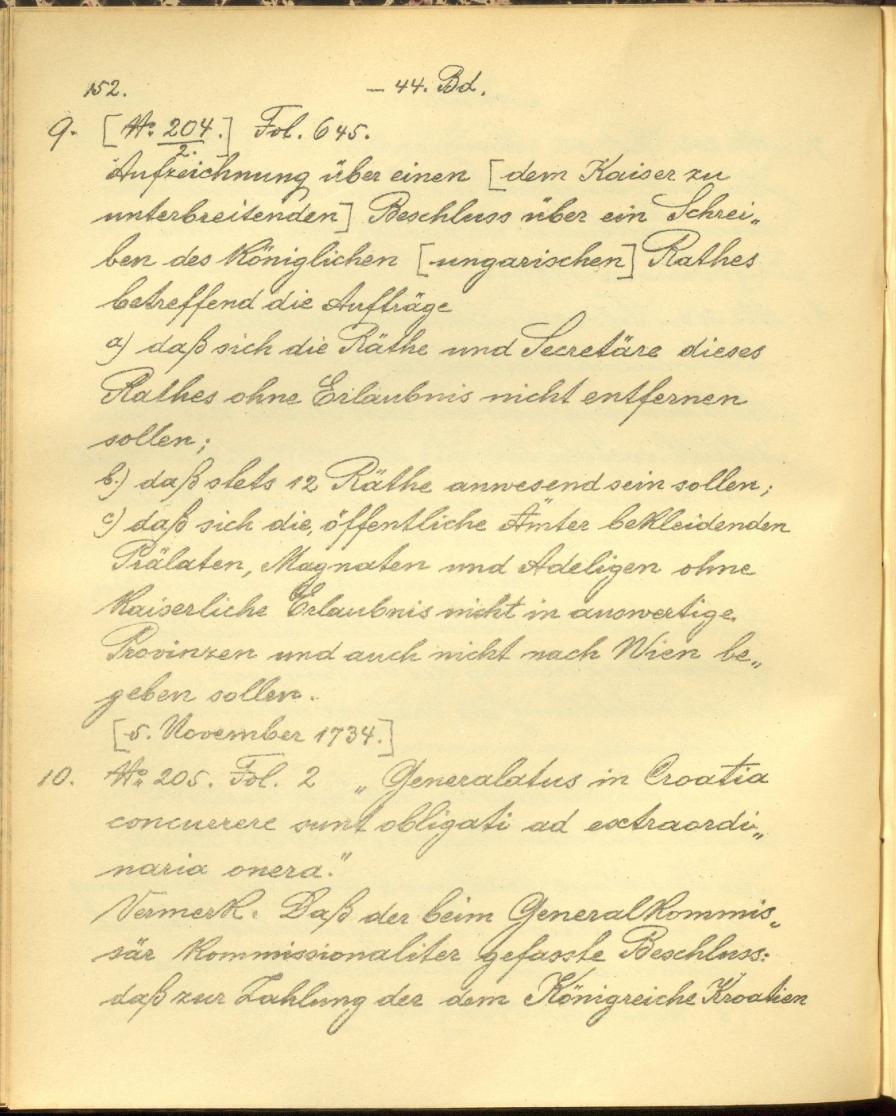 152. – 44. Bd.
9. [No. 204./2.] Fol. 645.
Aufzeichnung über einen [dem Kaiser zu
unterbreitenden] Beschluss über ein Schrei„
ben des Königlichen [ungarischen] Rathes
betreffend die Aufträge
a) daß sich die Räthe und Secretäre dieses
Rathes ohne Erlaubnis nicht entfernen
sollen;
b.) daß stets 12 Räthe anwesend sein sollen;
c) daß sich die, öffentliche Ämter bekleidenden
Prälaten, Magnaten und Adeligen ohne
Kaiserliche Erlaubnis nicht in auswertige
Provinzen und auch nicht nach Wien be„
geben sollen.
[5. November 1734.]
10. No. 205. Fol. 2 „Generalatus in Croatia
concurrere sunt obligati ad extraordi„
naria onera."
Vermerk. Daß der beim Generalkommis„
sär kommissionaliter gefasste Beschluss:
daß zur Zahlung der dem Königreiche Kroatien